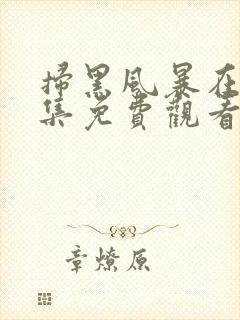 掃黑風暴在
集免費觀看
章燎原